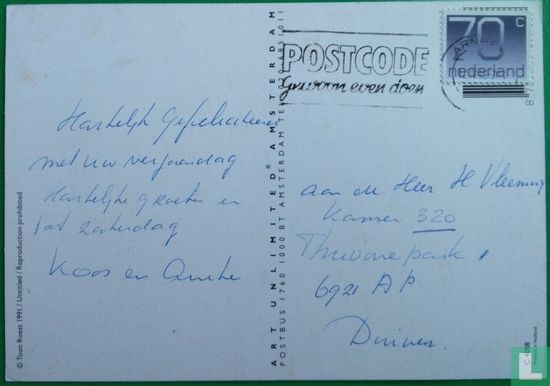 Hartelijk Gefeliciteerd
met uw verjaardag
Hartelijke groeten en
tot zaterdag
Koos en
© Toon Roest 1991 / Untitled / Reproduction prohibited
ART UNLIMITED® AMSTERDAM
POSTBUS 1760 1000 BT AMSTERDAM
POSTCODE
Gewoon even doen
ARNHEM
70 c
nederland
aan de Heer H Vleeming
Kamer 320
6921 AP
Duiven
Printed in Holland